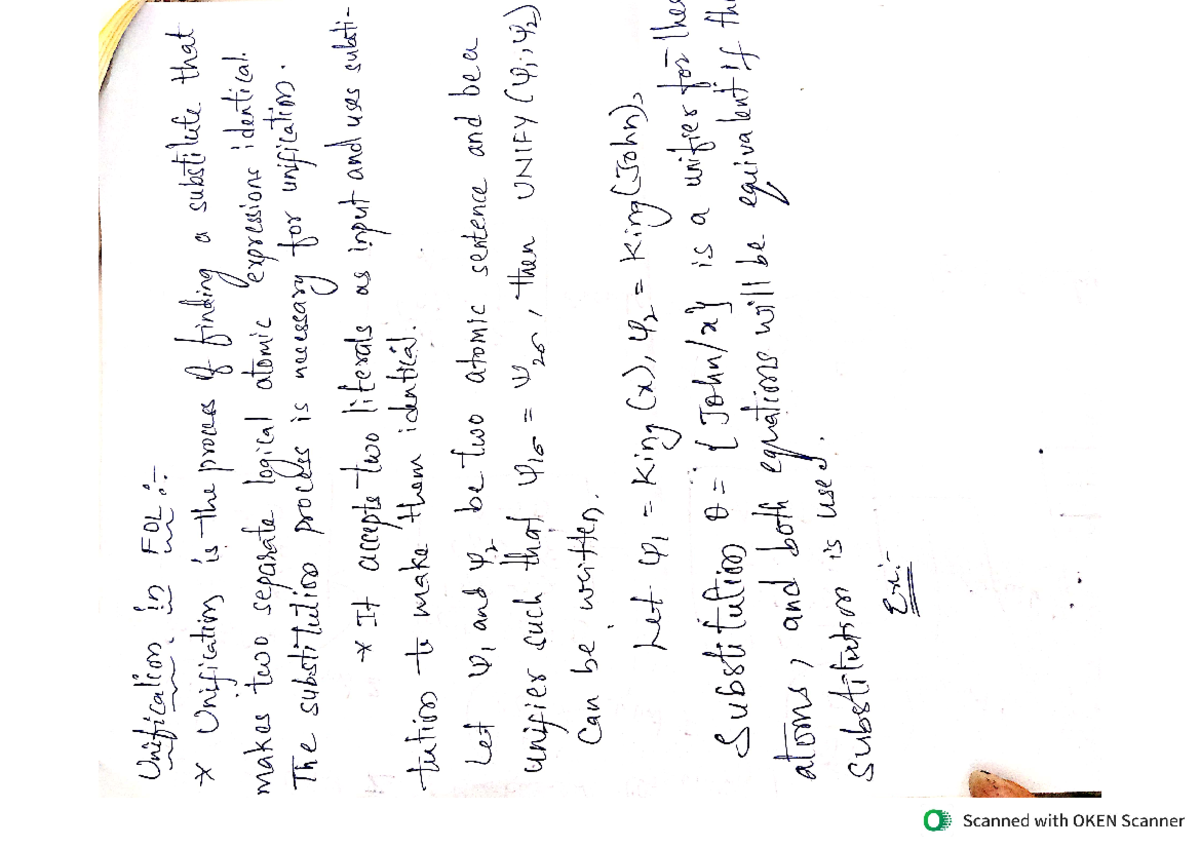 Unification in FOL :-
* Unification is the process of finding a substitute that
makes two separate logical atomic expressions identical.
The substitution process is necessary for unification.
* It accepts two literals as input and uses substi-
tution to make them identical.
Let Ψ1 and Ψ2 be two atomic sentence and be a
unifier such that Ψ1σ = Ψ2σ, then UNIFY (Ψ1, Ψ2)
Can be written.
Let Ψ1 = King (x), Ψ2 = King (John),
Substitution θ = { John/x} is a unifier for
atoms, and both equations will be equivalent if
Substitution is used.
Ex:-
Scanned with OKEN Scanner